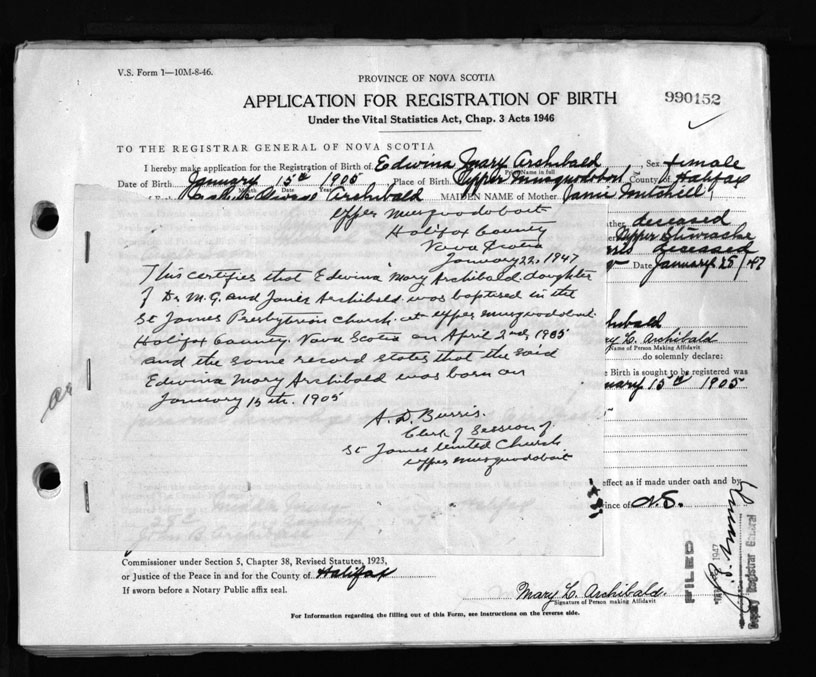 V.S. Form 1—10M-8-46.
PROVINCE OF NOVA SCOTIA
APPLICATION FOR REGISTRATION OF BIRTH
990152
Under the Vital Statistics Act, Chap. 3 Acts 1946
TO THE REGISTRAR GENERAL OF NOVA SCOTIA
I hereby make application for the Registration of Birth of Edwina Mary Archibald, Sex female
Print Name in full
Date of Birth January 15th 1905 Place of Birth Upper Musquodoboit County of Halifax
Archibald MAIDEN NAME of Mother Janie Mitchell
deceased
Upper Stewiacke
deceased
Date January 25/47
Upper Musquodoboit
Halifax County
Nova Scotia
January 22, 1947
This certifies that Edwina Mary Archibald daughter
of Dr M. G. and Janie Archibald was baptised in the
St James Presbyterian Church at Upper Musquodoboit
Halifax County, Nova Scotia on April 2nd, 1905
and the same record states that the said
Edwina Mary Archibald was born on
January 15th. 1905
A. D. Burris.
Clerk of Session of
St James United Church
Upper Musquodoboit
Archibald
Mary L. Archibald
Name of Person Making Affidavit
do solemnly declare:
Birth is sought to be registered was
January 15th 1905
effect as if made under oath and by
Province of N.S.
Commissioner under Section 5, Chapter 38, Revised Statutes, 1923,
or Justice of the Peace in and for the County of Halifax
If sworn before a Notary Public affix seal.
Mary L. Archibald.
Signature of Person making Affidavit
FILED
1947
Deputy Registrar General
For Information regarding the filling out of this Form, see instructions on the reverse side.